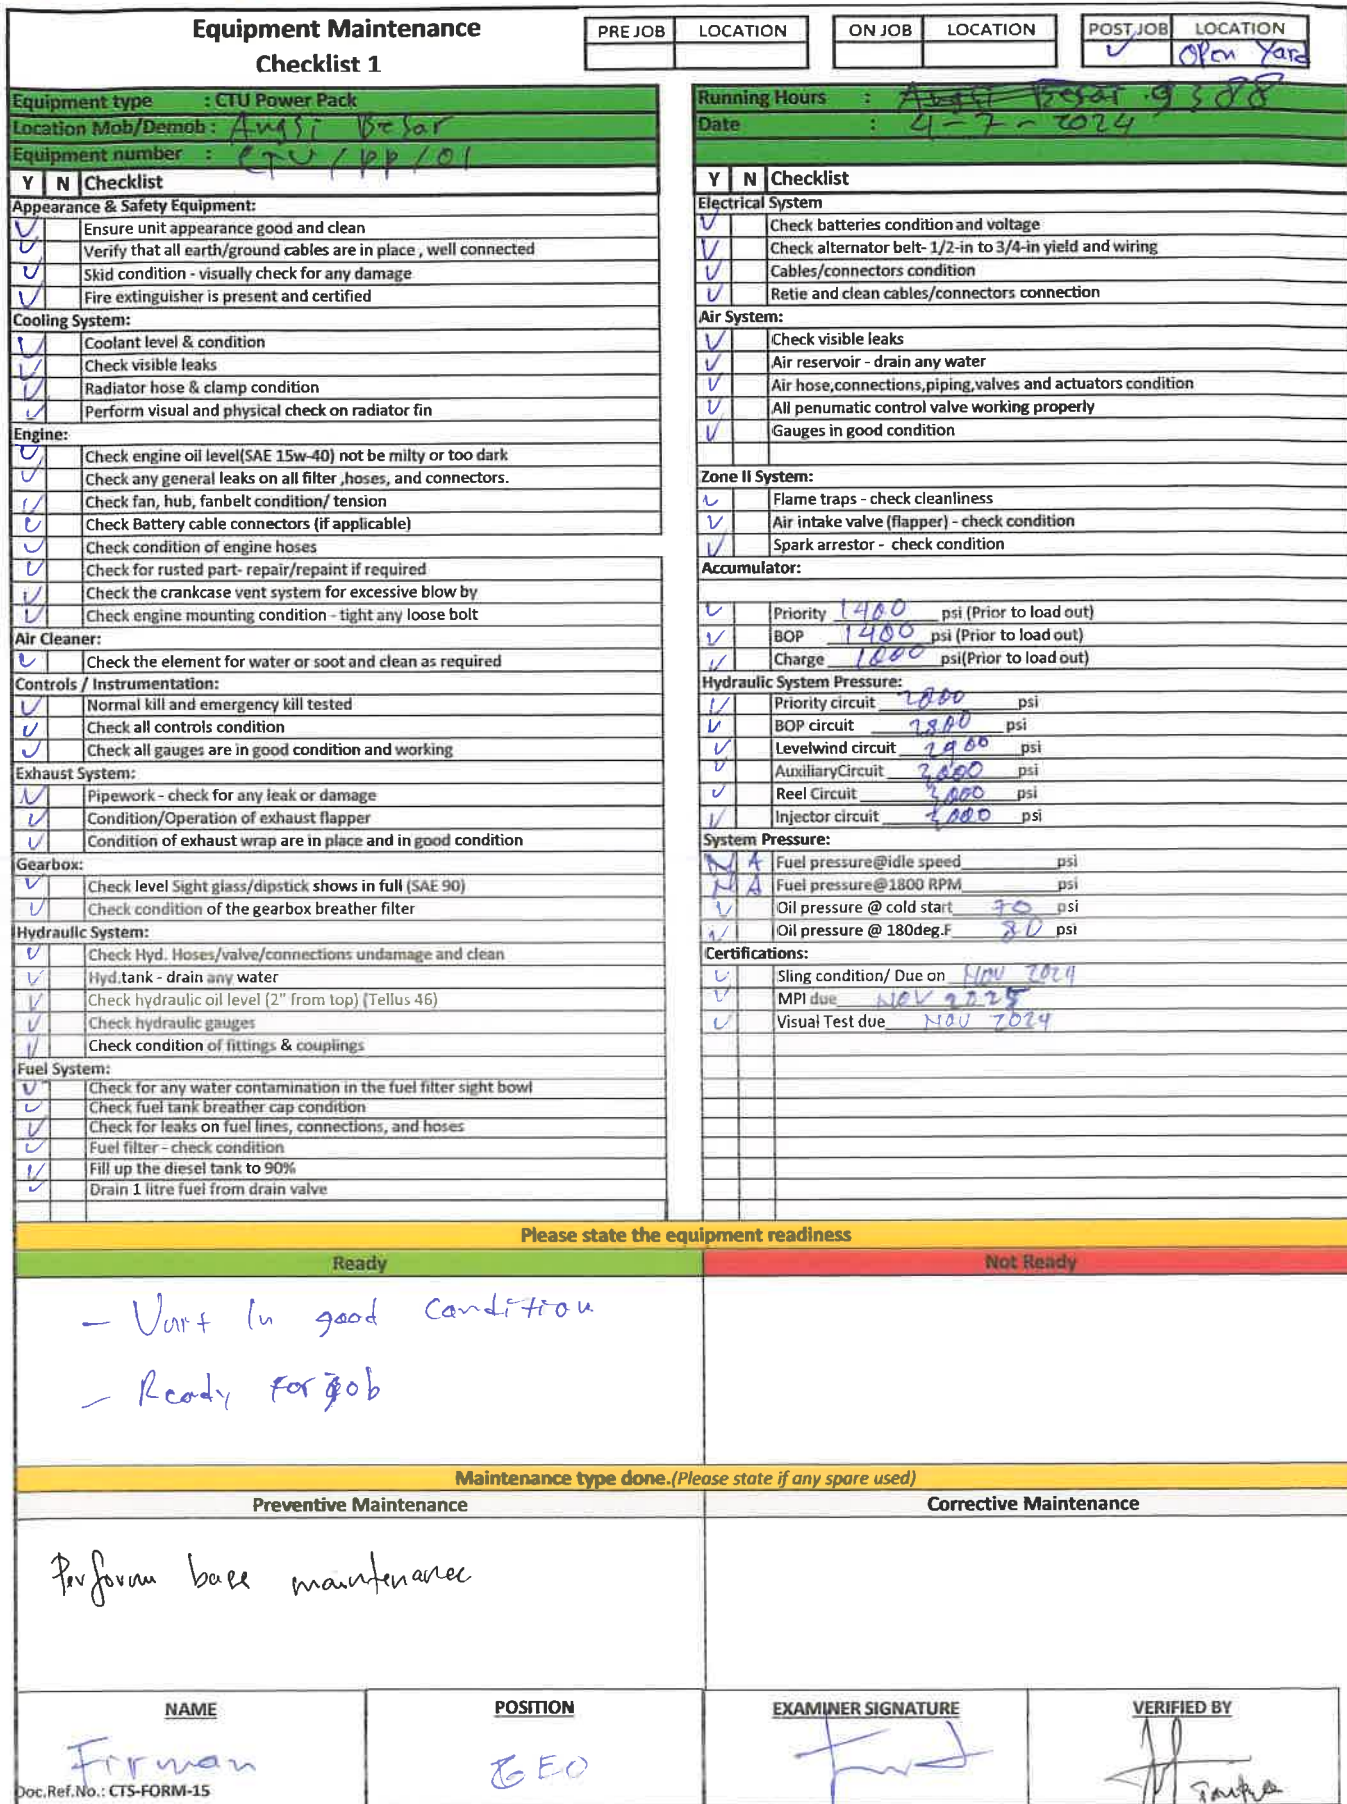 Equipment Maintenance
Checklist 1
PRE JOB LOCATION
ON JOB LOCATION
POST JOB LOCATION
✓ Open Yard
Equipment type : CTU Power Pack
Location Mob/Demob : Angsi Besar
Equipment number : CTU/PP/01
Running Hours : Angsi Besar 9388
Date : 4-7-2024
Y N Checklist
Appearance & Safety Equipment:
✓ Ensure unit appearance good and clean
✓ Verify that all earth/ground cables are in place , well connected
✓ Skid condition - visually check for any damage
✓ Fire extinguisher is present and certified
Cooling System:
✓ Coolant level & condition
✓ Check visible leaks
✓ Radiator hose & clamp condition
✓ Perform visual and physical check on radiator fin
Engine:
✓ Check engine oil level(SAE 15w-40) not be milty or too dark
✓ Check any general leaks on all filter ,hoses, and connectors.
✓ Check fan, hub, fanbelt condition/ tension
✓ Check Battery cable connectors (if applicable)
✓ Check condition of engine hoses
✓ Check for rusted part- repair/repaint if required
✓ Check the crankcase vent system for excessive blow by
✓ Check engine mounting condition - tight any loose bolt
Air Cleaner:
✓ Check the element for water or soot and clean as required
Controls / Instrumentation:
✓ Normal kill and emergency kill tested
✓ Check all controls condition
✓ Check all gauges are in good condition and working
Exhaust System:
✓ Pipework - check for any leak or damage
✓ Condition/Operation of exhaust flapper
✓ Condition of exhaust wrap are in place and in good condition
Gearbox:
✓ Check level Sight glass/dipstick shows in full (SAE 90)
✓ Check condition of the gearbox breather filter
Hydraulic System:
✓ Check Hyd. Hoses/valve/connections undamage and clean
✓ Hyd.tank - drain any water
✓ Check hydraulic oil level (2" from top) (Tellus 46)
✓ Check hydraulic gauges
✓ Check condition of fittings & couplings
Fuel System:
✓ Check for any water contamination in the fuel filter sight bowl
✓ Check fuel tank breather cap condition
✓ Check for leaks on fuel lines, connections, and hoses
✓ Fuel filter - check condition
✓ Fill up the diesel tank to 90%
✓ Drain 1 litre fuel from drain valve
Y N Checklist
Electrical System
✓ Check batteries condition and voltage
✓ Check alternator belt- 1/2-in to 3/4-in yield and wiring
✓ Cables/connectors condition
✓ Retie and clean cables/connectors connection
Air System:
✓ Check visible leaks
✓ Air reservoir - drain any water
✓ Air hose,connections,piping,valves and actuators condition
✓ All penumatic control valve working properly
✓ Gauges in good condition
Zone II System:
✓ Flame traps - check cleanliness
✓ Air intake valve (flapper) - check condition
✓ Spark arrestor - check condition
Accumulator:
✓ Priority 1400 psi (Prior to load out)
✓ BOP 1400 psi (Prior to load out)
✓ Charge 1000 psi(Prior to load out)
Hydraulic System Pressure:
✓ Priority circuit 2800 psi
✓ BOP circuit 2800 psi
✓ Levelwind circuit 2900 psi
✓ AuxiliaryCircuit 3000 psi
✓ Reel Circuit 3000 psi
✓ Injector circuit psi
System Pressure:
N A Fuel pressure@idle speed psi
N A Fuel pressure@1800 RPM psi
✓ Oil pressure @ cold start 70 psi
✓ Oil pressure @ 180deg.F 80 psi
Certifications:
✓ Sling condition/ Due on Nov 2024
✓ MPI due NOV 2025
✓ Visual Test due NOV 2024
Please state the equipment readiness
Ready Not Ready
- Unit In good Condition
- Ready For Job
Maintenance type done.(Please state if any spare used)
Preventive Maintenance Corrective Maintenance
Perform base maintenance
NAME POSITION EXAMINER SIGNATURE VERIFIED BY
Firman
Doc.Ref.No.: CTS-FORM-15